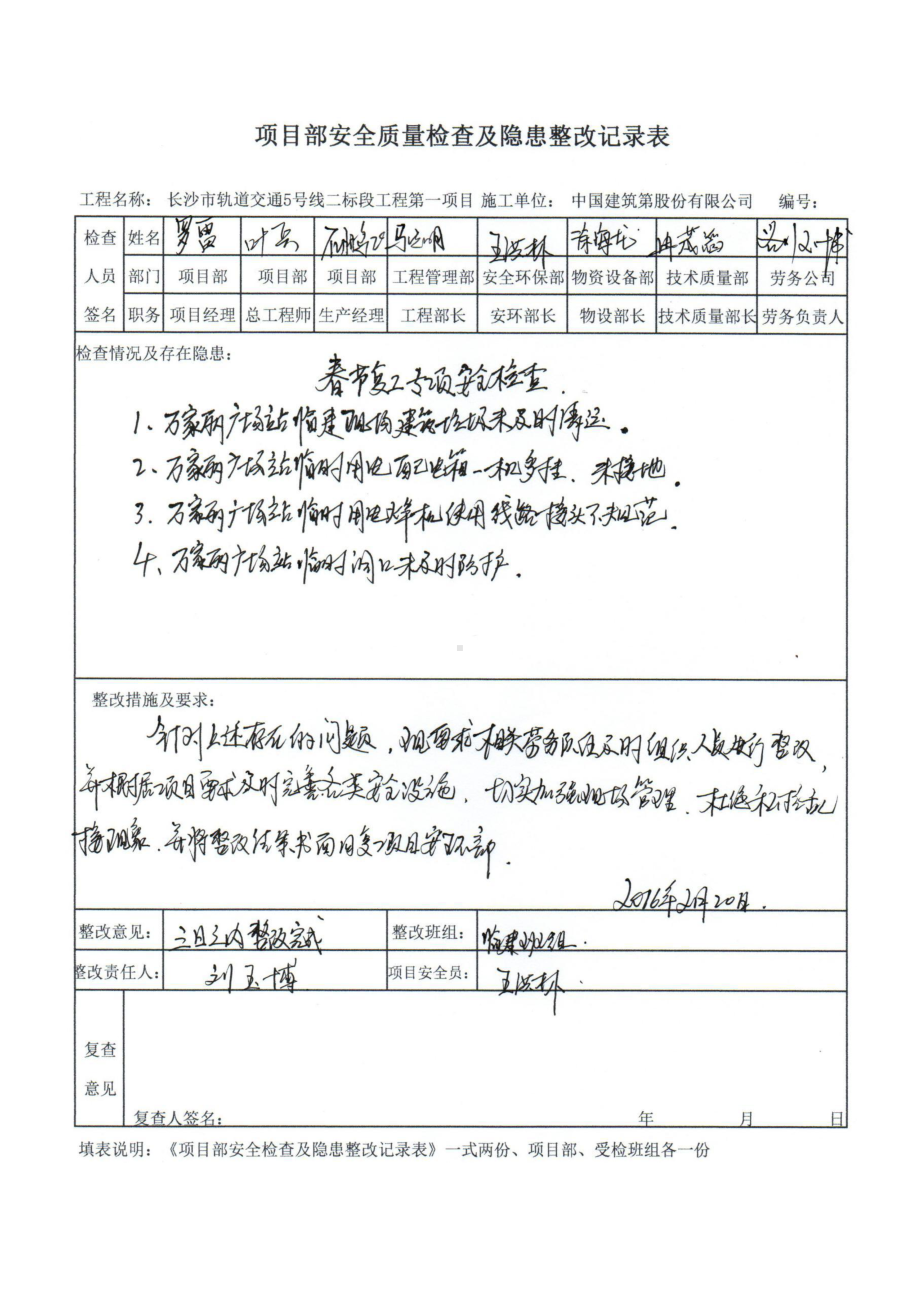 项目部安全质量检查及隐患整改记录表
工程名称： 长沙市轨道交通5号线二标段工程第一项目 施工单位： 中国建筑第股份有限公司 编号：
检查 姓名 罗雷 叶 马 明 王洪林
人员 部门 项目部 项目部 项目部 工程管理部 安全环保部 物资设备部 技术质量部 劳务公司
签名 职务 项目经理 总工程师 生产经理 工程部长 安环部长 物设部长 技术质量部长 劳务负责人
检查情况及存在隐患：
春节复工专项安全检查.
1、万家丽广场站临建现场建筑垃圾未及时清运。
2、万家丽广场站临时用电配电箱一机多挂、未接地。
3、万家丽广场站临时用电焊机使用线路接头不规范.
4、万家丽广场站临时洞口未及时防护.
整改措施及要求：
针对上述存在的问题，现要求相关劳务队伍及时组织人员进行整改，
并根据项目要求及时完善各类安全设施，切实加强现场管理、杜绝私拉乱
接现象.并将整改结果书面回复项目安环部.
2016年2月20日.
整改意见： 三日之内整改完成 整改班组： 临建班组.
整改责任人： 刘玉博 项目安全员： 王洪林.
复查
意见
复查人签名： 年 月 日
填表说明：《项目部安全检查及隐患整改记录表》一式两份、项目部、受检班组各一份